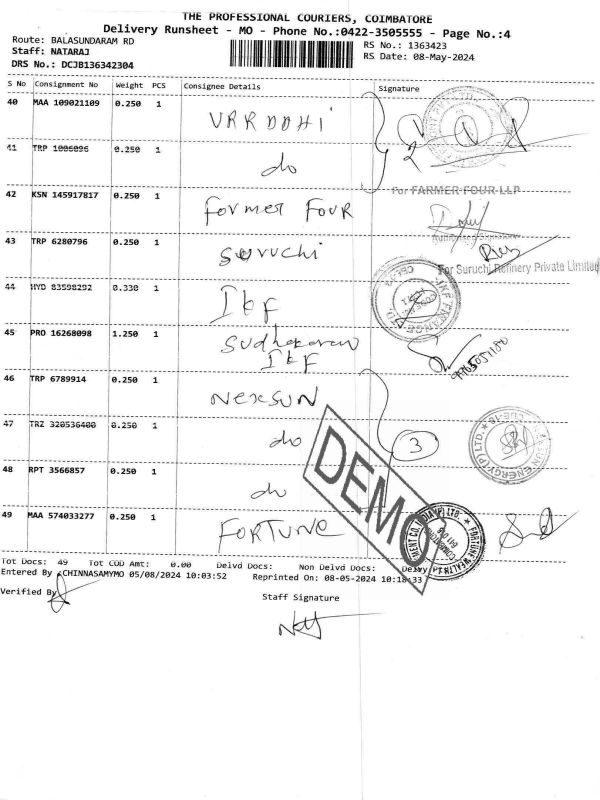 THE PROFESSIONAL COURIERS, COIMBATORE
Delivery Runsheet - MO - Phone No.:0422-3505555 - Page No.:4
Route: BALASUNDARAM RD
RS No.: 1363423
Staff: NATARAJ
RS Date: 08-May-2024
DRS No.: DCJB136342304
S No Consignment No Weight PCS Consignee Details Signature
40 MAA 109021109 0.250 1 VRRDDHI
2
41 TRP 1006096 0.250 1 do
For FARMER FOUR LLP
42 KSN 145917817 0.250 1 Former Four
Authorised Signatory
43 TRP 6280796 0.250 1 Suruchi
For Suruchi Refinery Private Limited
44 HYD 83598292 0.330 1 IKF
IKF FINANCE LTD
45 PRO 16268098 1.250 1 Sudhakaran
IKF
46 TRP 6789914 0.250 1 NEXSUN
47 TRZ 320536400 0.250 1 do
3
SUN ENERGY (P) LTD.
48 RPT 3566857 0.250 1 do
DEMO
49 MAA 574033277 0.250 1 FORTUNE
FORTUNE WEALTH
MENT CO. INDIA (P) LTD.
Tot Docs: 49 Tot COD Amt: 0.00 Delvd Docs: Non Delvd Docs:
Entered By :CHINNASAMYMO 05/08/2024 10:03:52 Reprinted On: 08-05-2024 10:18:33
Verified By
Staff Signature